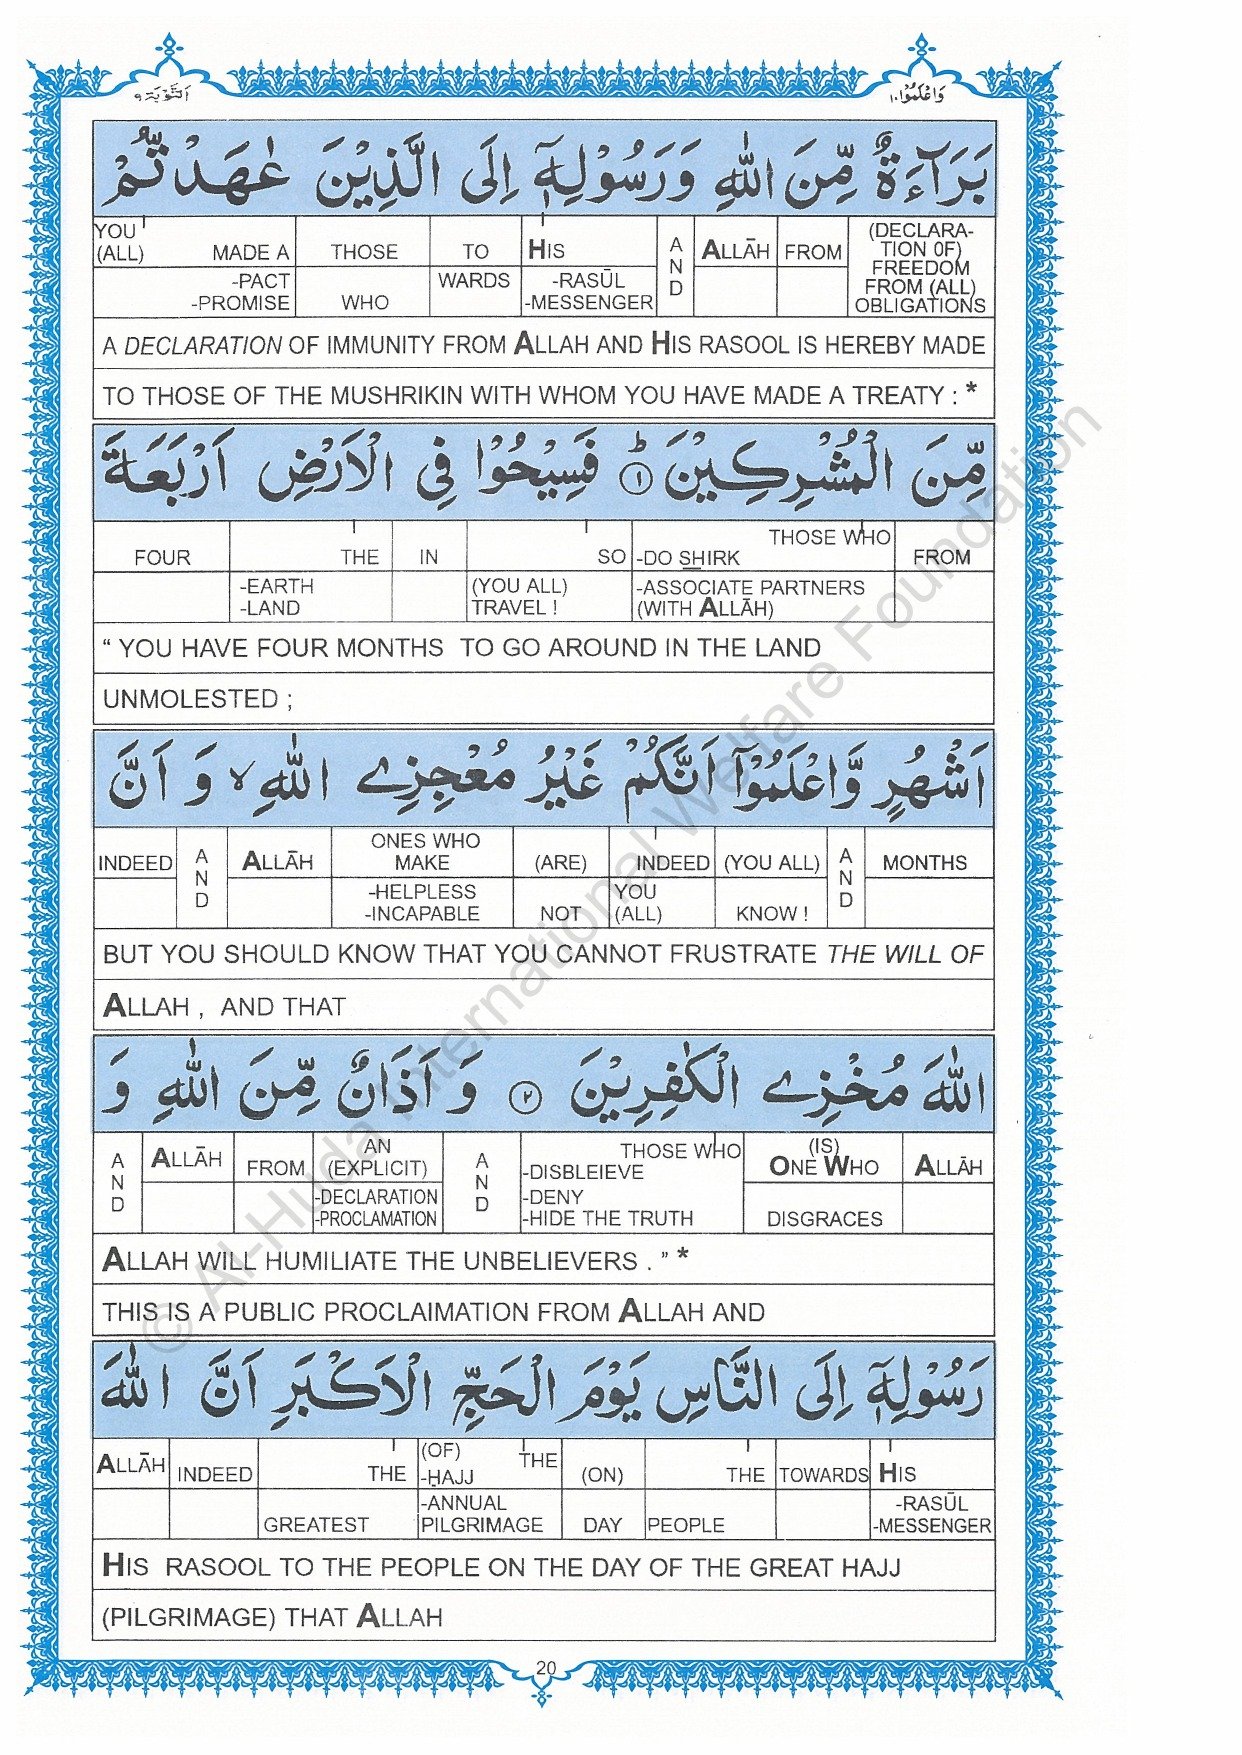 التَّوْبَة ٩
وَاعْلَمُوْا ١٠
بَرَآءَةٌ مِّنَ اللّٰهِ وَرَسُوْلِهٖٓ اِلَى الَّذِيْنَ عٰهَدْتُّمْ
YOU (ALL) MADE A -PACT -PROMISE | THOSE WHO | TO WARDS | HIS -RASŪL -MESSENGER | AND | ALLĀH | FROM | (DECLARA-TION 0F) FREEDOM FROM (ALL) OBLIGATIONS
A DECLARATION OF IMMUNITY FROM ALLAH AND HIS RASOOL IS HEREBY MADE
TO THOSE OF THE MUSHRIKIN WITH WHOM YOU HAVE MADE A TREATY : *
مِّنَ الْمُشْرِكِيْنَ ؕ ١ فَسِيْحُوْا فِي الْاَرْضِ اَرْبَعَةَ
FOUR | THE -EARTH -LAND | IN | SO (YOU ALL) TRAVEL ! | THOSE WHO -DO SHIRK -ASSOCIATE PARTNERS (WITH ALLĀH) | FROM
“ YOU HAVE FOUR MONTHS TO GO AROUND IN THE LAND
UNMOLESTED ;
اَشْهُرٍ وَّاعْلَمُوْٓا اَنَّكُمْ غَيْرُ مُعْجِزِي اللّٰهِ ۙ وَ اَنَّ
INDEED | AND | ALLĀH | ONES WHO MAKE -HELPLESS -INCAPABLE | (ARE) NOT | INDEED YOU (ALL) | (YOU ALL) KNOW ! | AND | MONTHS
BUT YOU SHOULD KNOW THAT YOU CANNOT FRUSTRATE THE WILL OF
ALLAH , AND THAT
اللّٰهَ مُخْزِي الْكٰفِرِيْنَ ٢ وَ اَذَانٌ مِّنَ اللّٰهِ وَ
AND | ALLĀH | FROM | AN (EXPLICIT) -DECLARATION -PROCLAMATION | AND | THOSE WHO -DISBLEIEVE -DENY -HIDE THE TRUTH | (IS) ONE WHO DISGRACES | ALLĀH
ALLAH WILL HUMILIATE THE UNBELIEVERS . ” *
THIS IS A PUBLIC PROCLAIMATION FROM ALLAH AND
رَسُوْلِهٖٓ اِلَى النَّاسِ يَوْمَ الْحَجِّ الْاَكْبَرِ اَنَّ اللّٰهَ
ALLĀH | INDEED | THE GREATEST | (OF) THE -ḤAJJ -ANNUAL PILGRIMAGE | (ON) DAY | THE PEOPLE | TOWARDS | HIS -RASŪL -MESSENGER
HIS RASOOL TO THE PEOPLE ON THE DAY OF THE GREAT HAJJ
(PILGRIMAGE) THAT ALLAH
20
© Al-Huda International Welfare Foundation